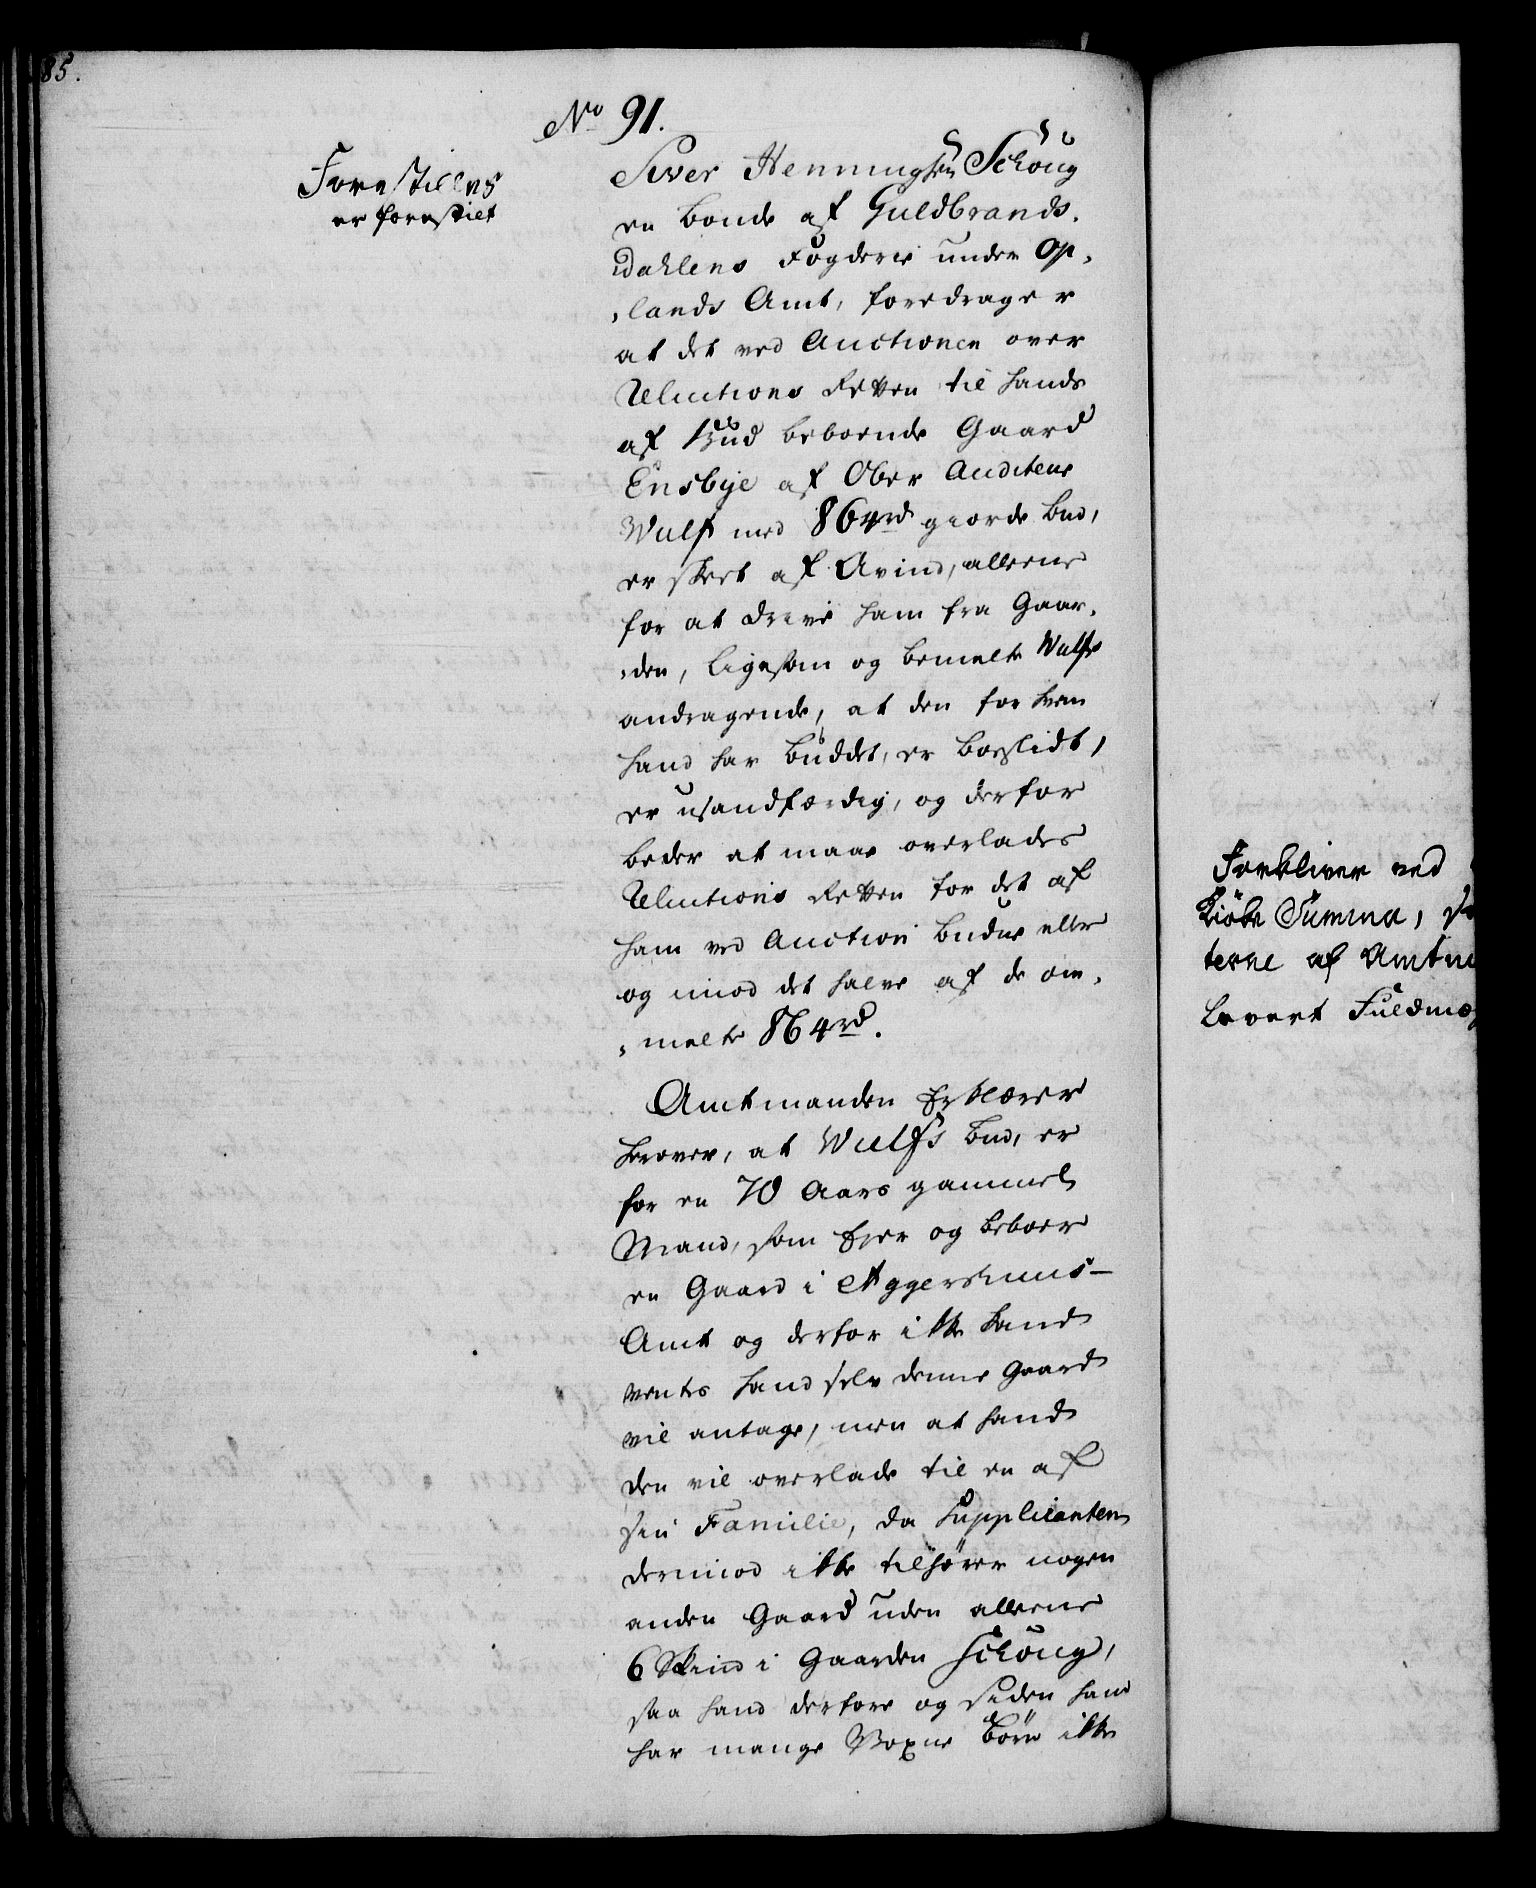 85.
No 91.
Forestilles
er forestilt
Siver Henningsen Schoug
en bonde af Guldbrands,
dahlens Fogderie under Op,
,lands Amt, foredrager
at det ved Auctionen over
Relutions Retten til hands
af Bud beboende Gaard
Ensbye af Ober Auditeur
Wulf med 864 rd giorde bud,
er skeet af Avind, alleene
for at drive ham fra Gaar,
,den, ligesom og bemelte Wulfs
andragende, at den for hvem
hand har buddet, er boeslidt,
er usandfærdig, og derfor
beder at maae overlades
Relutions Retten for det af
ham ved Auction budne eller
og imod det halve af de om,
,melte 864 rd.
Amtmanden Erklærer
herover, at Wulfs bud, er
for en 70 Aars gammel
Mand, som Ejer og beboer
en Gaard i Aggershuus-
Amt og derfor ikke kand
ventes hand selv denne Gaard
vil antage, men at hand
den vil overlade til en af
sin Familie, da Supplicanten
derimod ikke tilhører nogen
anden Gaard uden alleene
6 Skind i Gaarden Schoug,
saa hand derfore og siden hand
har mange Voxne børn ikke
Forbliver ved
Kiøbe Summa,
terne af Amtm
levert Fuldmæg